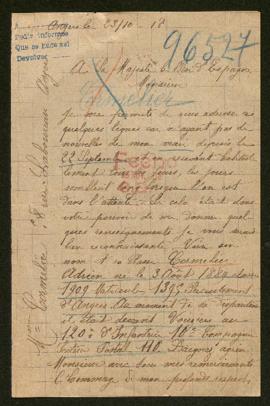 Angers le 23/10 - 18
A
Pedir informe
Que se pide
Devolver
96527
A Sa Majesté le Roi d'Espagne
Monsieur
Termelier
Je me permets de vous adresser
quelques lignes car n'ayant pas de
nouvelles de mon mari depuis le
22 Septembre recevant habituel
lement tous les jours, les jours
semblent longs lorsque l'on est
dans l'attente. Si cela était dans
votre pouvoir de me donner quel
ques renseignements je vous serais
bien reconnaissante. Voici son
nom et sa Classe Termelier
Adrien né le 3 Août 1889 classe
1909 Matricule 1395 Recrutement
d'Angers Au moment de sa disparition
il était devant Vouziers au
120e d'Infanterie 10e Compagnie
Secteur Postal 110. Daignez agréer
Monsieur avec tous mes remerciements
l'hommage de mon profond respect,
Mme Termelier 8 rue